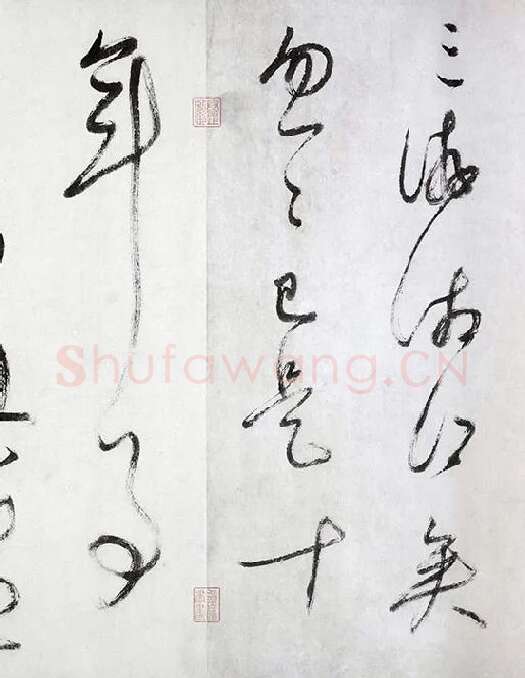 三游湘江矣
忽忽已是十
年事
Shufawang.CN